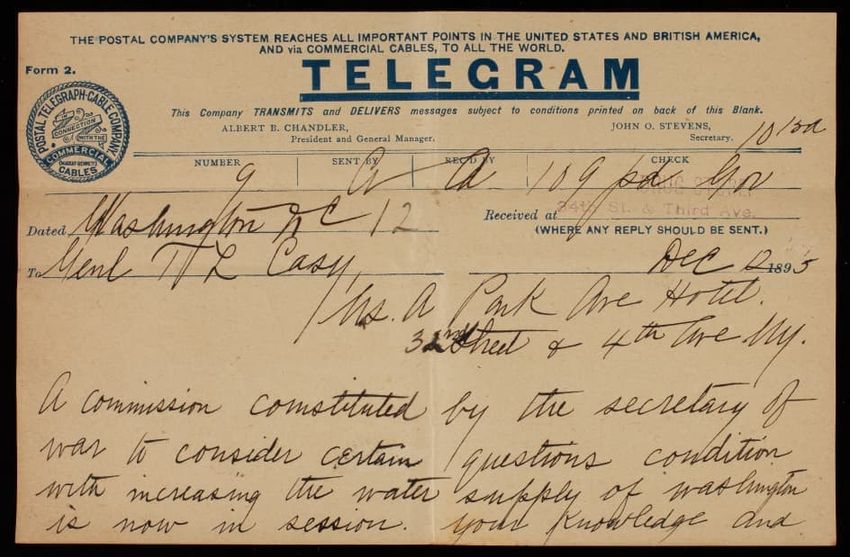 THE POSTAL COMPANY'S SYSTEM REACHES ALL IMPORTANT POINTS IN THE UNITED STATES AND BRITISH AMERICA,
AND via COMMERCIAL CABLES, TO ALL THE WORLD.
Form 2.
TELEGRAM
POSTAL TELEGRAPH-CABLE COMPANY
CONNECTION WITH THE
COMMERCIAL
(MACKAY-BENNETT)
CABLES
This Company TRANSMITS and DELIVERS messages subject to conditions printed on back of this Blank.
ALBERT B. CHANDLER,
President and General Manager.
JOHN O. STEVENS,
Secretary.
NUMBER SENT BY REC'D BY CHECK
9 109 Gov
Dated Washington DC 12
Received at 34th St. & Third Ave.
(WHERE ANY REPLY SHOULD BE SENT.)
Dec 12 1895
To Genl T L Casy
U.S. A Park Ave Hotel.
32nd Street & 4th Ave NY.
A commission comstituted by the secretary of
war to consider certain questions condition
with increasing the water supply of washington
is now in session. Your knowledge and